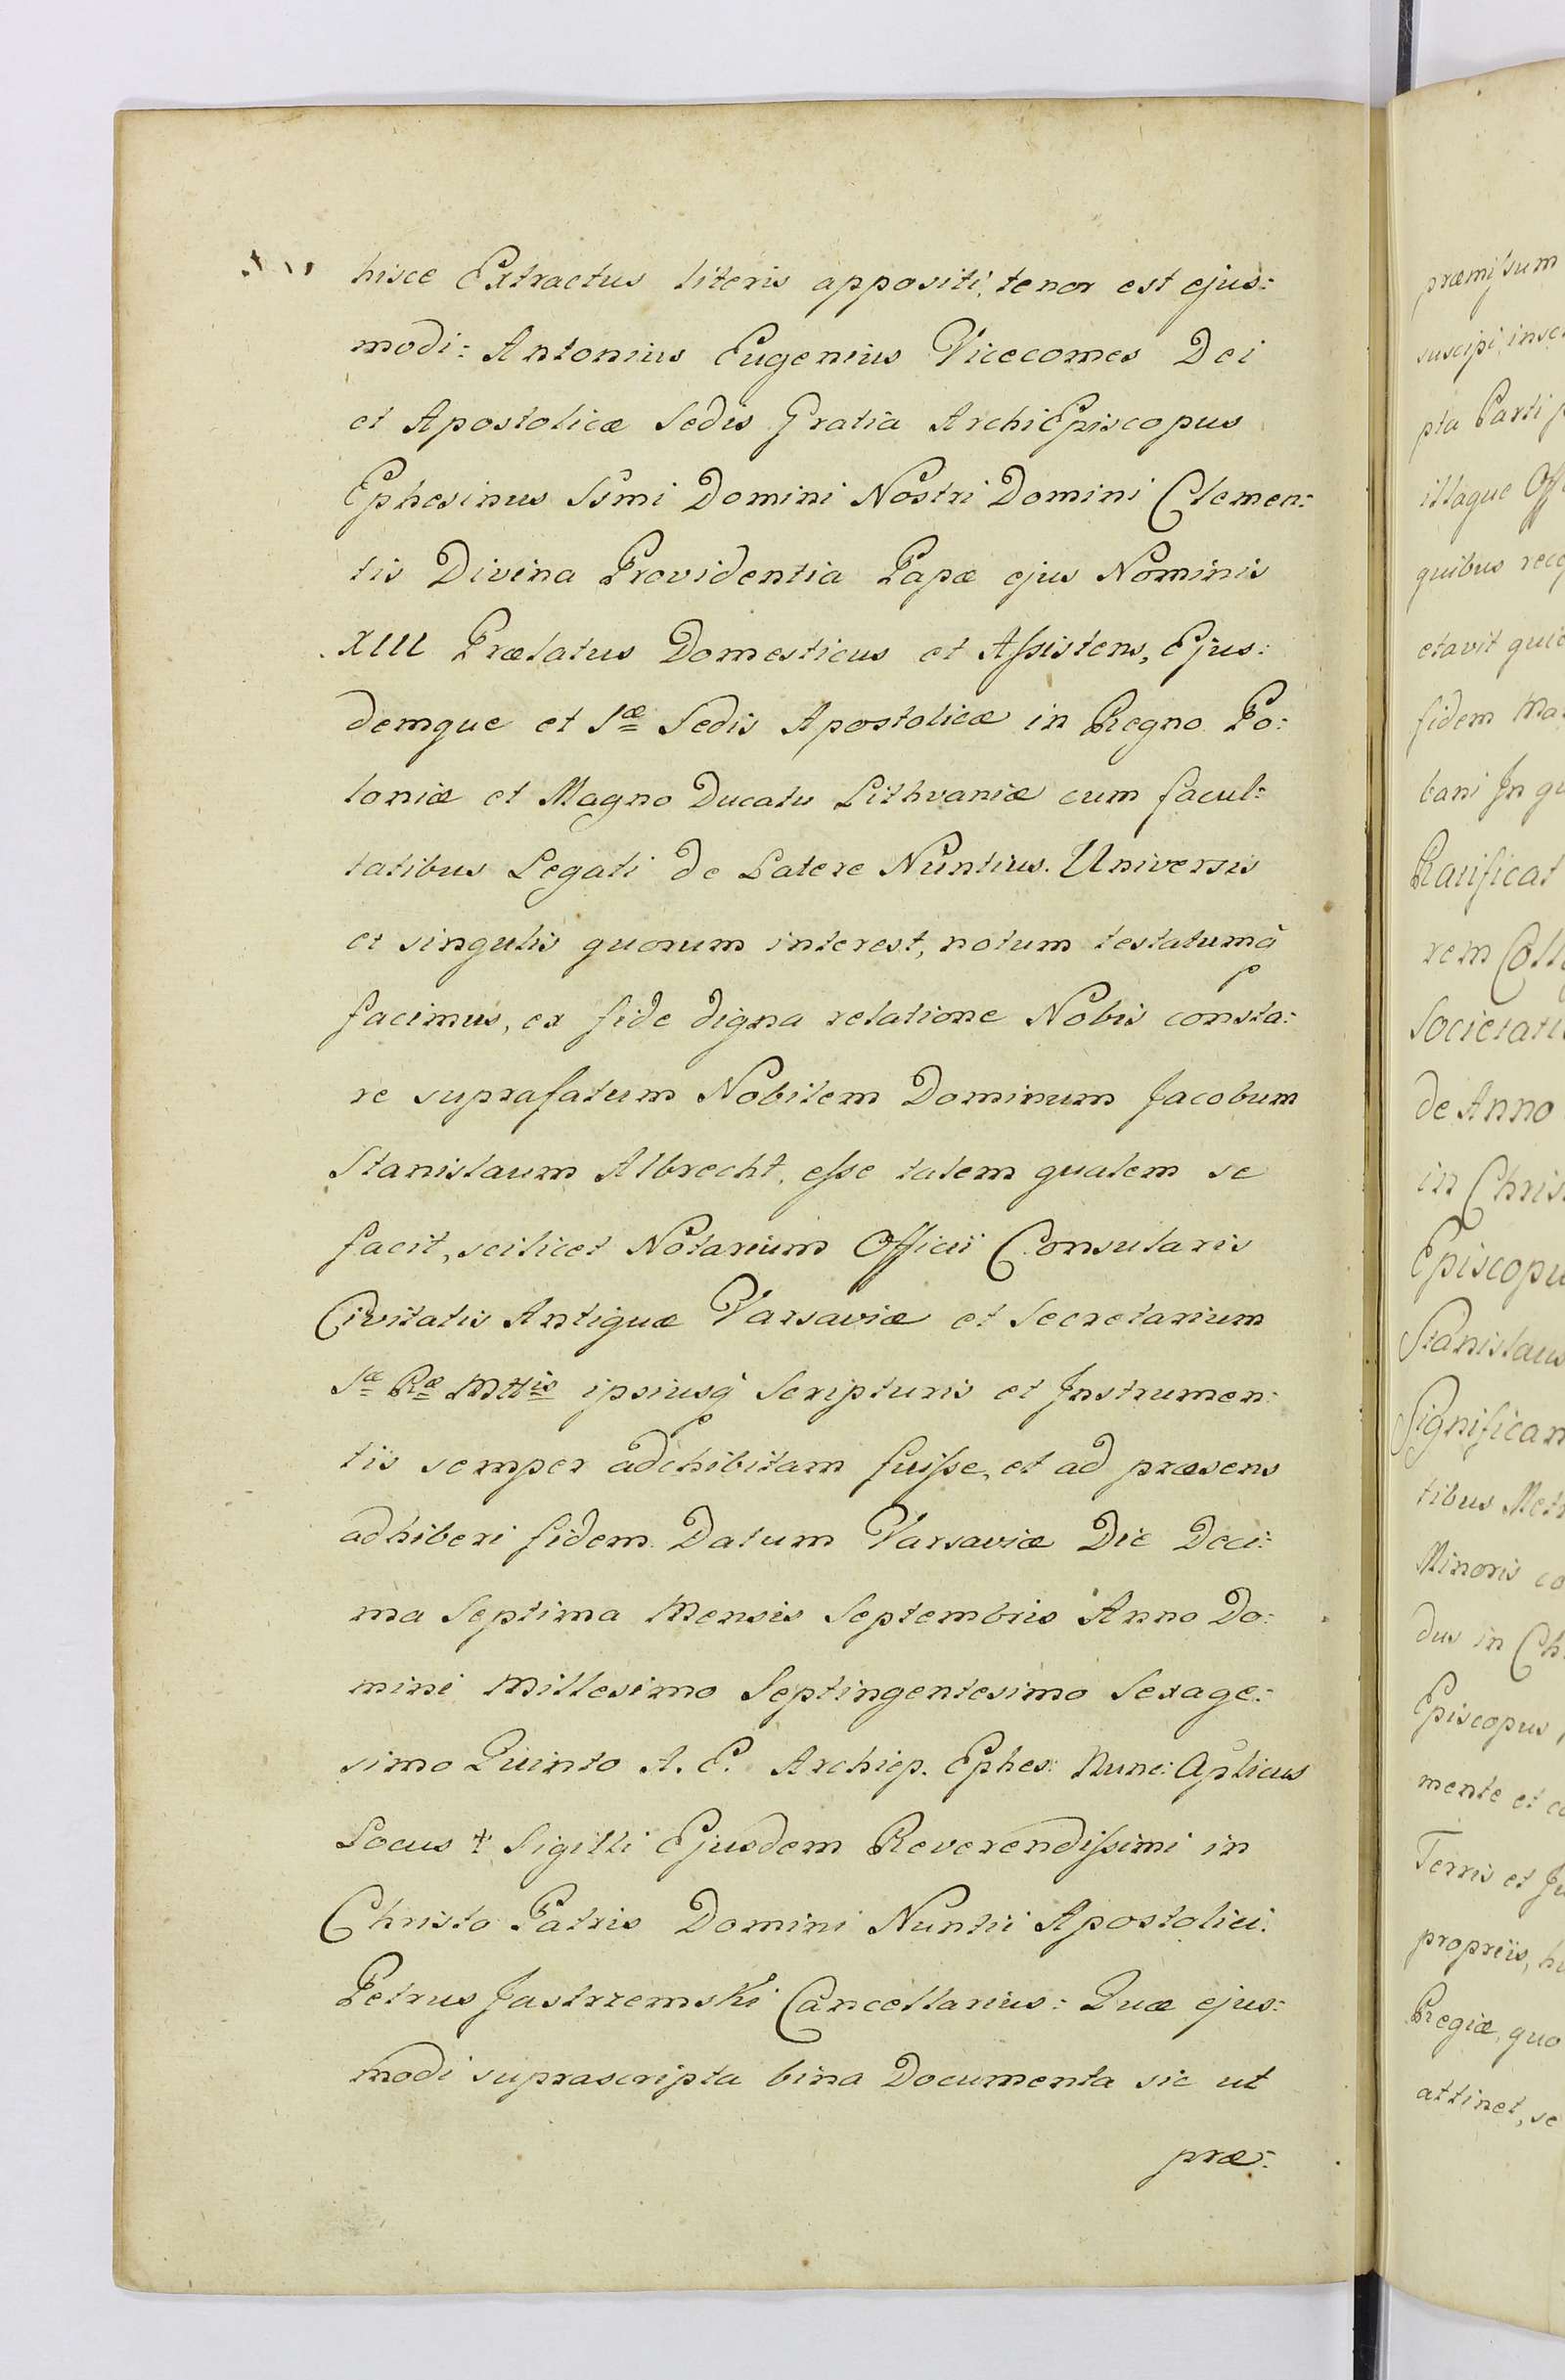 hisce Extractus literis appositi, tenor est ejus:
modi: Antonius Eugenius Vicecomes Dei
et Apostolicæ Sedis Gratia ArchiEpiscopus
Ephesinus Ssmi Domini Nostri Domini Clemen:
tis Divina Providentia Papæ ejus Nominis
XIII Prælatus Domesticus et Aſsistens, Ejus:
demque et Sæ Sedis Apostolicæ in Regno Po:
loniæ et Magno Ducatu Lithvaniæ cum facul:
tatibus Legati de Latere Nuntius. Universis
et singulis quorum interest, notum testatumq̃
facimus, ex fide digna relatione Nobis consta:
re suprafatum Nobilem Dominum Jacobum
Stanislaum Albrecht, eſse talem qualem se
facit, scilicet Notarium Officii Consularis
Civitatis Antiquæ Varsaviæ et Secretarium
Sæ Ræ Mttis ipsiusq̃ Scripturis et Instrumen:
tis semper adchibitam fuiſse, et ad præsens
adhiberi fidem. Datum Varsaviæ Die Deci:
ma Septima Mensis Septembris Anno Do:
mini Millesimo Septingentesimo Sexage:
simo Quinto A. E. Archiep. Ephes: Nunc: Aplicus
Locus ✝ Sigilli Ejusdem Reverendiſsimi in
Christo Patris Domini Nuntii Apostolici.
Petrus Jastrzemski Cancellarius: Quæ ejus:
modi suprascripta bina Documenta sic ut
præ:
præmiſsum
suscipi, insc
pta Parti
illaque Off
quibus rec
etavit
fidem Ma
bani In
Ratificat
rem Coll
Societati
de Anno
in Chris
Episcopu
Stanislaus
Significan
tibus Met
Minoris co
dus in Ch
Episcopus,
mente et
Terris et
propriis, h
Regiæ, quo
attinet, se